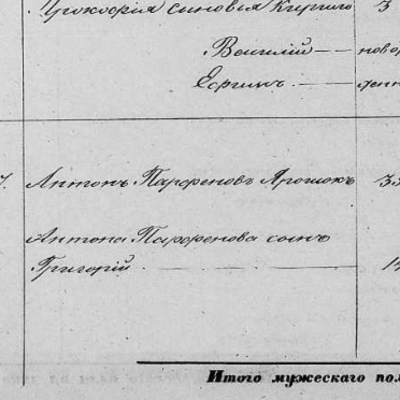 Прокофія сыновья Кирило 3
Василій — — ново
Ефимъ —
7. Антонъ Парфеновъ Ярошокъ 35
Антона Парфенова сынъ
Григорій — — 14
Итого мужескаго пол